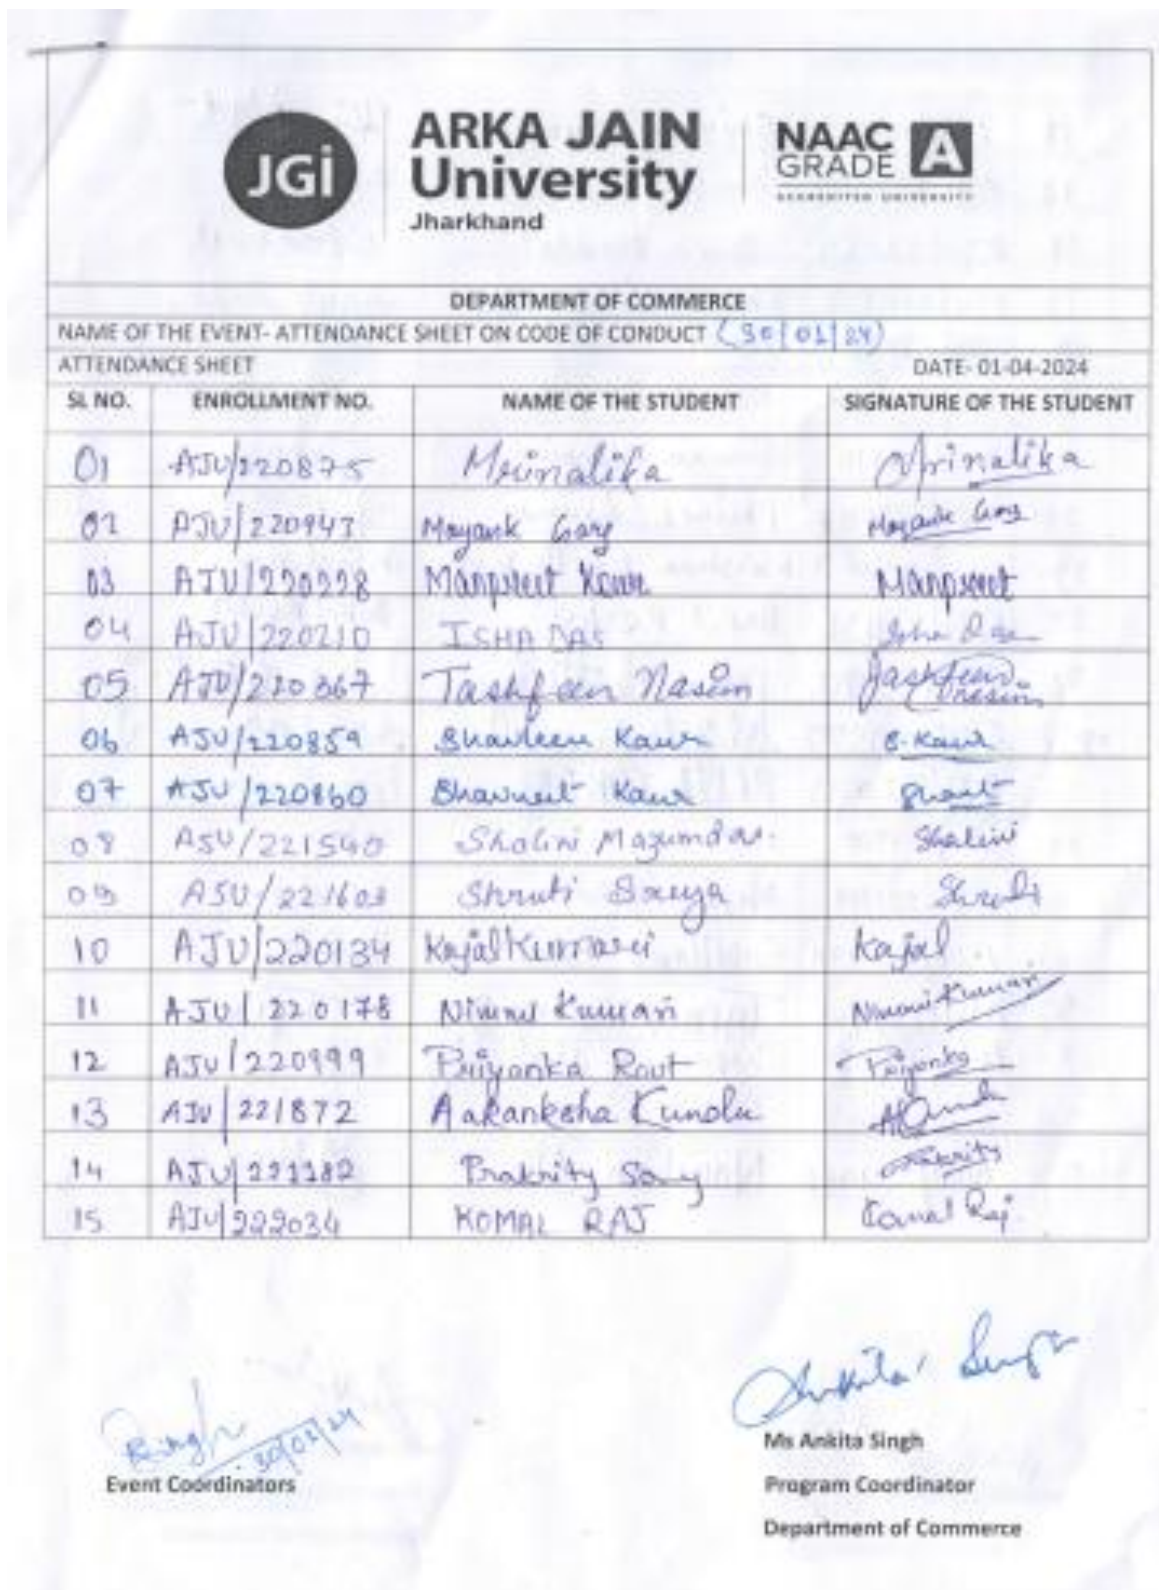 JGi
ARKA JAIN
University
Jharkhand
NAAC
GRADE A
ACCREDITED UNIVERSITY
DEPARTMENT OF COMMERCE
NAME OF THE EVENT- ATTENDANCE SHEET ON CODE OF CONDUCT (30/01/24)
ATTENDANCE SHEET DATE- 01-04-2024
SL NO. ENROLLMENT NO. NAME OF THE STUDENT SIGNATURE OF THE STUDENT
01 AJU/220875 Mrinalika Mrinalika
02 AJU/220943 Mayank Garg Mayank Garg
03 AJU/220228 Manpreet Kaur Manpreet
04 AJU/220210 ISHA DAS Isha Das
05 AJU/220367 Tashfeen Nasim Tashfeen Nasim
06 AJU/220859 Bhavleen Kaur B. Kaur
07 AJU/220860 Bhavneet Kaur
08 AJU/221540 Shalini Mazumdar. Shalini
09 AJU/221603 Shruti Shruti
10 AJU/220134 Kajal Kumari Kajal
11 AJU/220178 Nimmi Kumari Nimmi Kumari
12 AJU/220999 Priyanka Rout Priyanka
13 AJU/221872 Aakanksha
14 AJU/221182 Prakrity Prakrity
15 AJU/222034 KOMAL RAJ Komal Raj
Ankita Singh
Ms Ankita Singh
Event Coordinators Program Coordinator
Department of Commerce